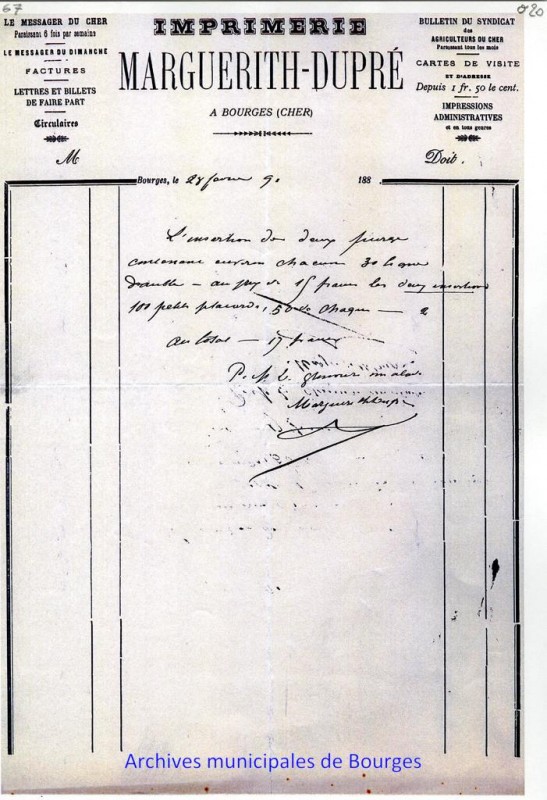 67
020
LE MESSAGER DU CHER
Paraissant 6 fois par semaine
LE MESSAGER DU DIMANCHE
FACTURES
LETTRES ET BILLETS
DE FAIRE PART
Circulaires
M
IMPRIMERIE
MARGUERITH-DUPRÉ
A BOURGES (CHER)
BULLETIN DU SYNDICAT
des
AGRICULTEURS DU CHER
Paraissant tous les mois
CARTES DE VISITE
ET D'ADRESSE
Depuis 1 fr. 50 le cent.
IMPRESSIONS
ADMINISTRATIVES
et en tous genres
Doit.
Bourges, le 28 février 90 188
L'insertion de deux
contenant environ chacune 30 lignes
au prix de 15 francs les deux insertions
100 petits placards, 50 de chaque — 2
au total — 17 francs
P.
Marguerith Dupré
Archives municipales de Bourges